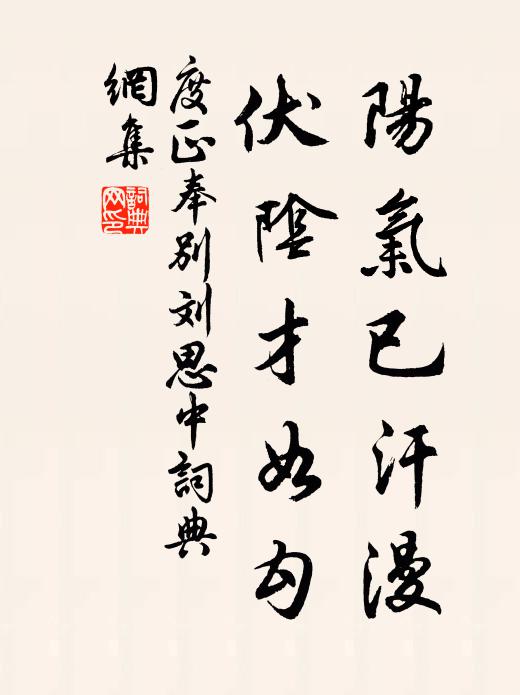 陽氣已汗漫
伏陰才如勾
度正奉別刘思中詞典
網集
詞典网印